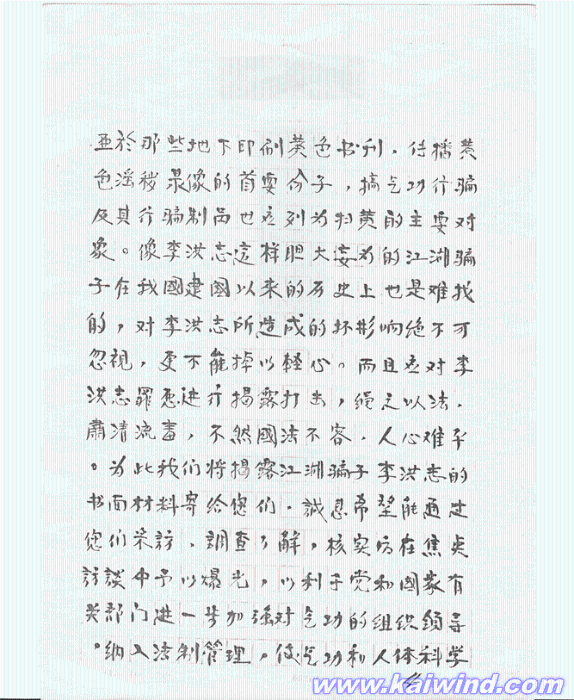 亚於那些地下印刷黄色书刊，传播黄
色淫秽录像的首要分子，搞气功行骗
及其行骗制品也应列为扫黄的主要对
象。像李洪志這样胆大妄为的江湖骗
子在我國建國以来的历史上也是难找
的，对李洪志所造成的坏影响绝不可
忽視，更不能掉以轻心。而且应对李
洪志罪恶进行揭露打击，绳之以法，
肃清流毒，不然國法不容，人心难平
。为此我们将揭露江湖骗子李洪志的
书面材料寄给您们，誠恳希望能通过
您们采訪、調查了解，核实后在焦点
訪談中予以爆光，以利于党和國家有
关部门进一步加强对气功的组织领导
，纳入法制管理，使气功和人体科学
www.kaiwind.com